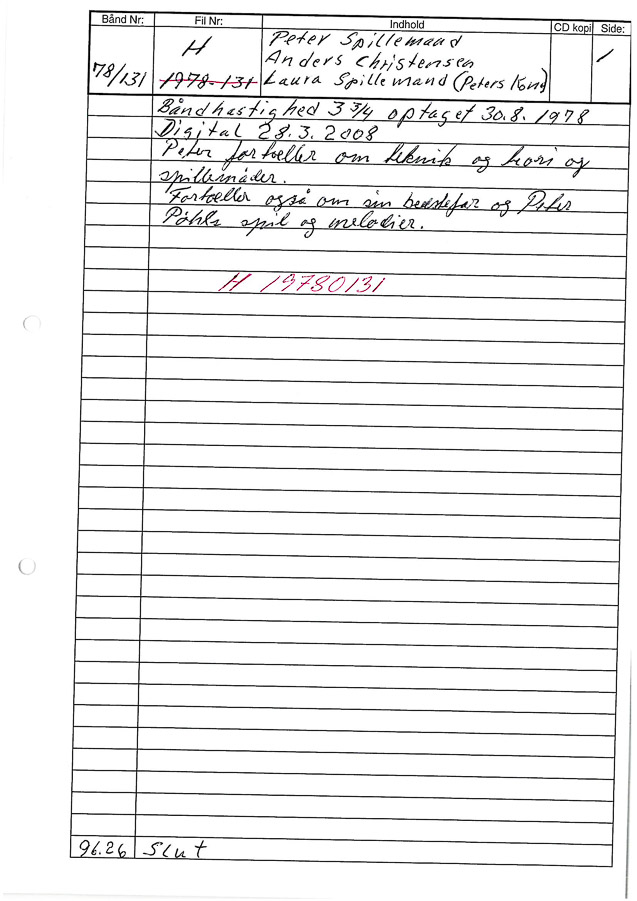 Bånd Nr: Fil Nr: Indhold CD kopi Side:
H Peter Spillemand
Anders Christensen 1
78/131 1978-131 Laura Spillemand (Peters Kone)
Båndhastighed 3 3/4 optaget 30.8.1978
Digital 28.3.2008
Peter fortæller om teknik og teori og
spillemåder.
Fortæller også om sin bedstefar og Peter
Påhls spil og melodier.
H 19780131
96.26 Slut